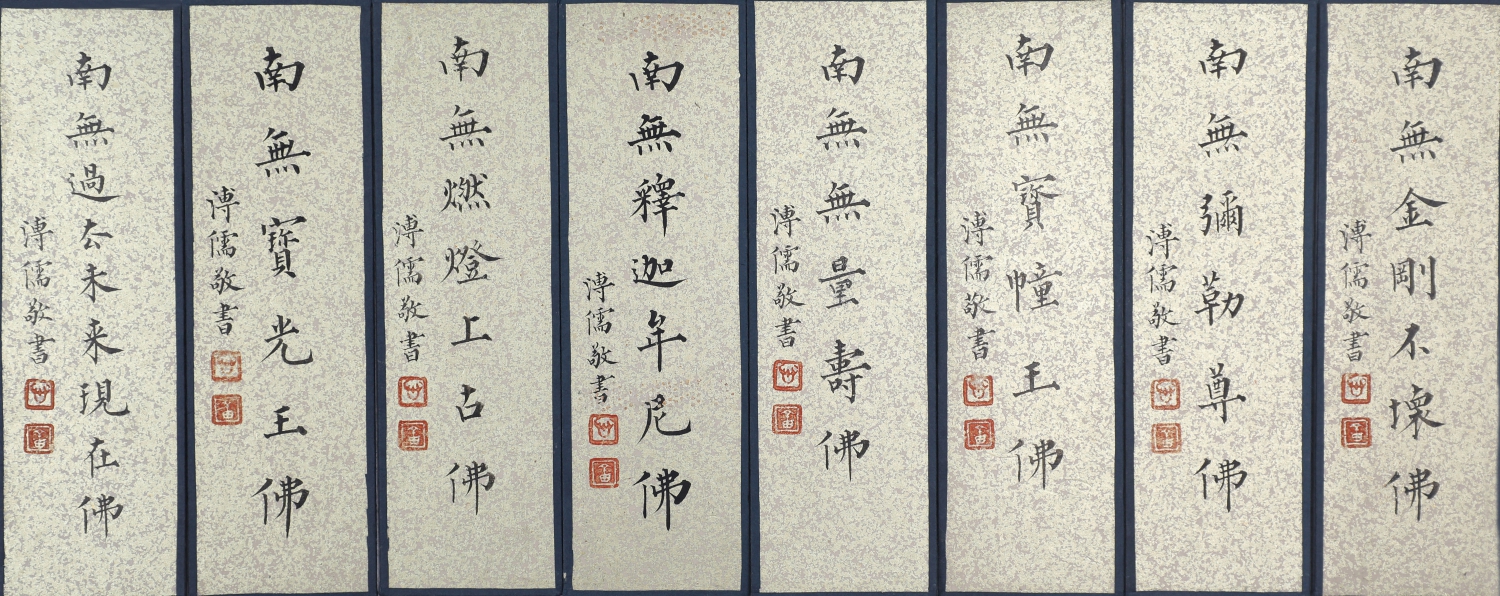 南無金剛不壞佛
溥儒敬書
南無彌勒尊佛
溥儒敬書
南無寶幢王佛
溥儒敬書
南無無量壽佛
溥儒敬書
南無釋迦牟尼佛
溥儒敬書
南無燃燈上古佛
溥儒敬書
南無寶光王佛
溥儒敬書
南無過去未来現在佛
溥儒敬書